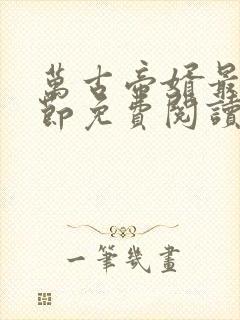 萬古帝婿最
節免費閱讀
一筆幾畫